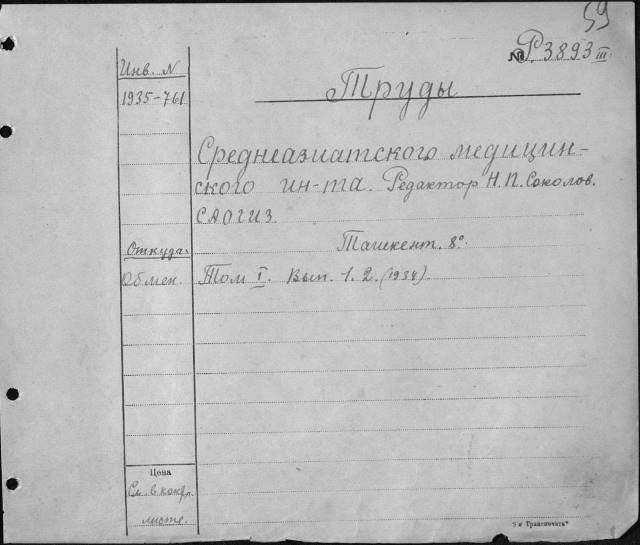 59
№ Р3893 III
Инв. N
1935-761
Труды
Среднеазиатского медицин-
ского ин-та. Редактор Н.П. Соколов.
САОГИЗ.
Ташкент. 8°.
Откуда:
Обмен.
Том I. Вып. 1. 2. (1934).
Цена
См. в конц.
листе.
5-я Транспечать"